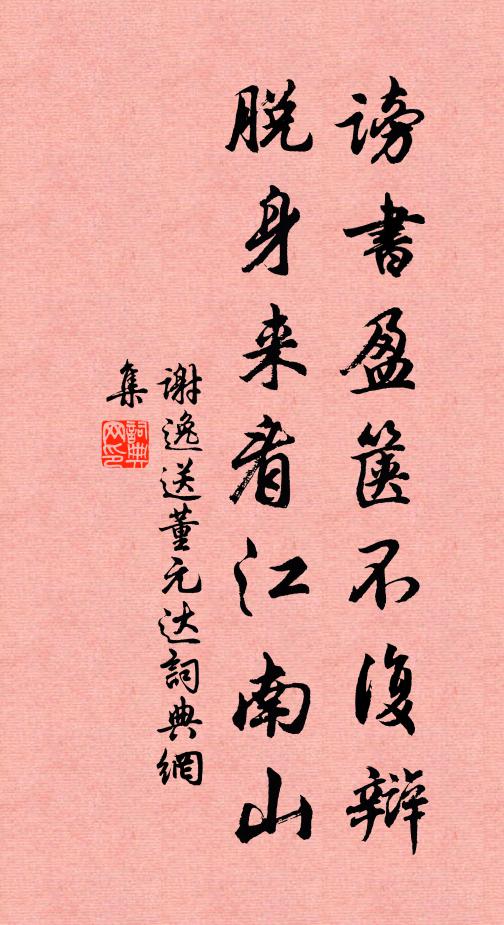 謗書盈箧不復辯
脱身来看江南山
谢逸送董元达詞典網
集
詞典网印